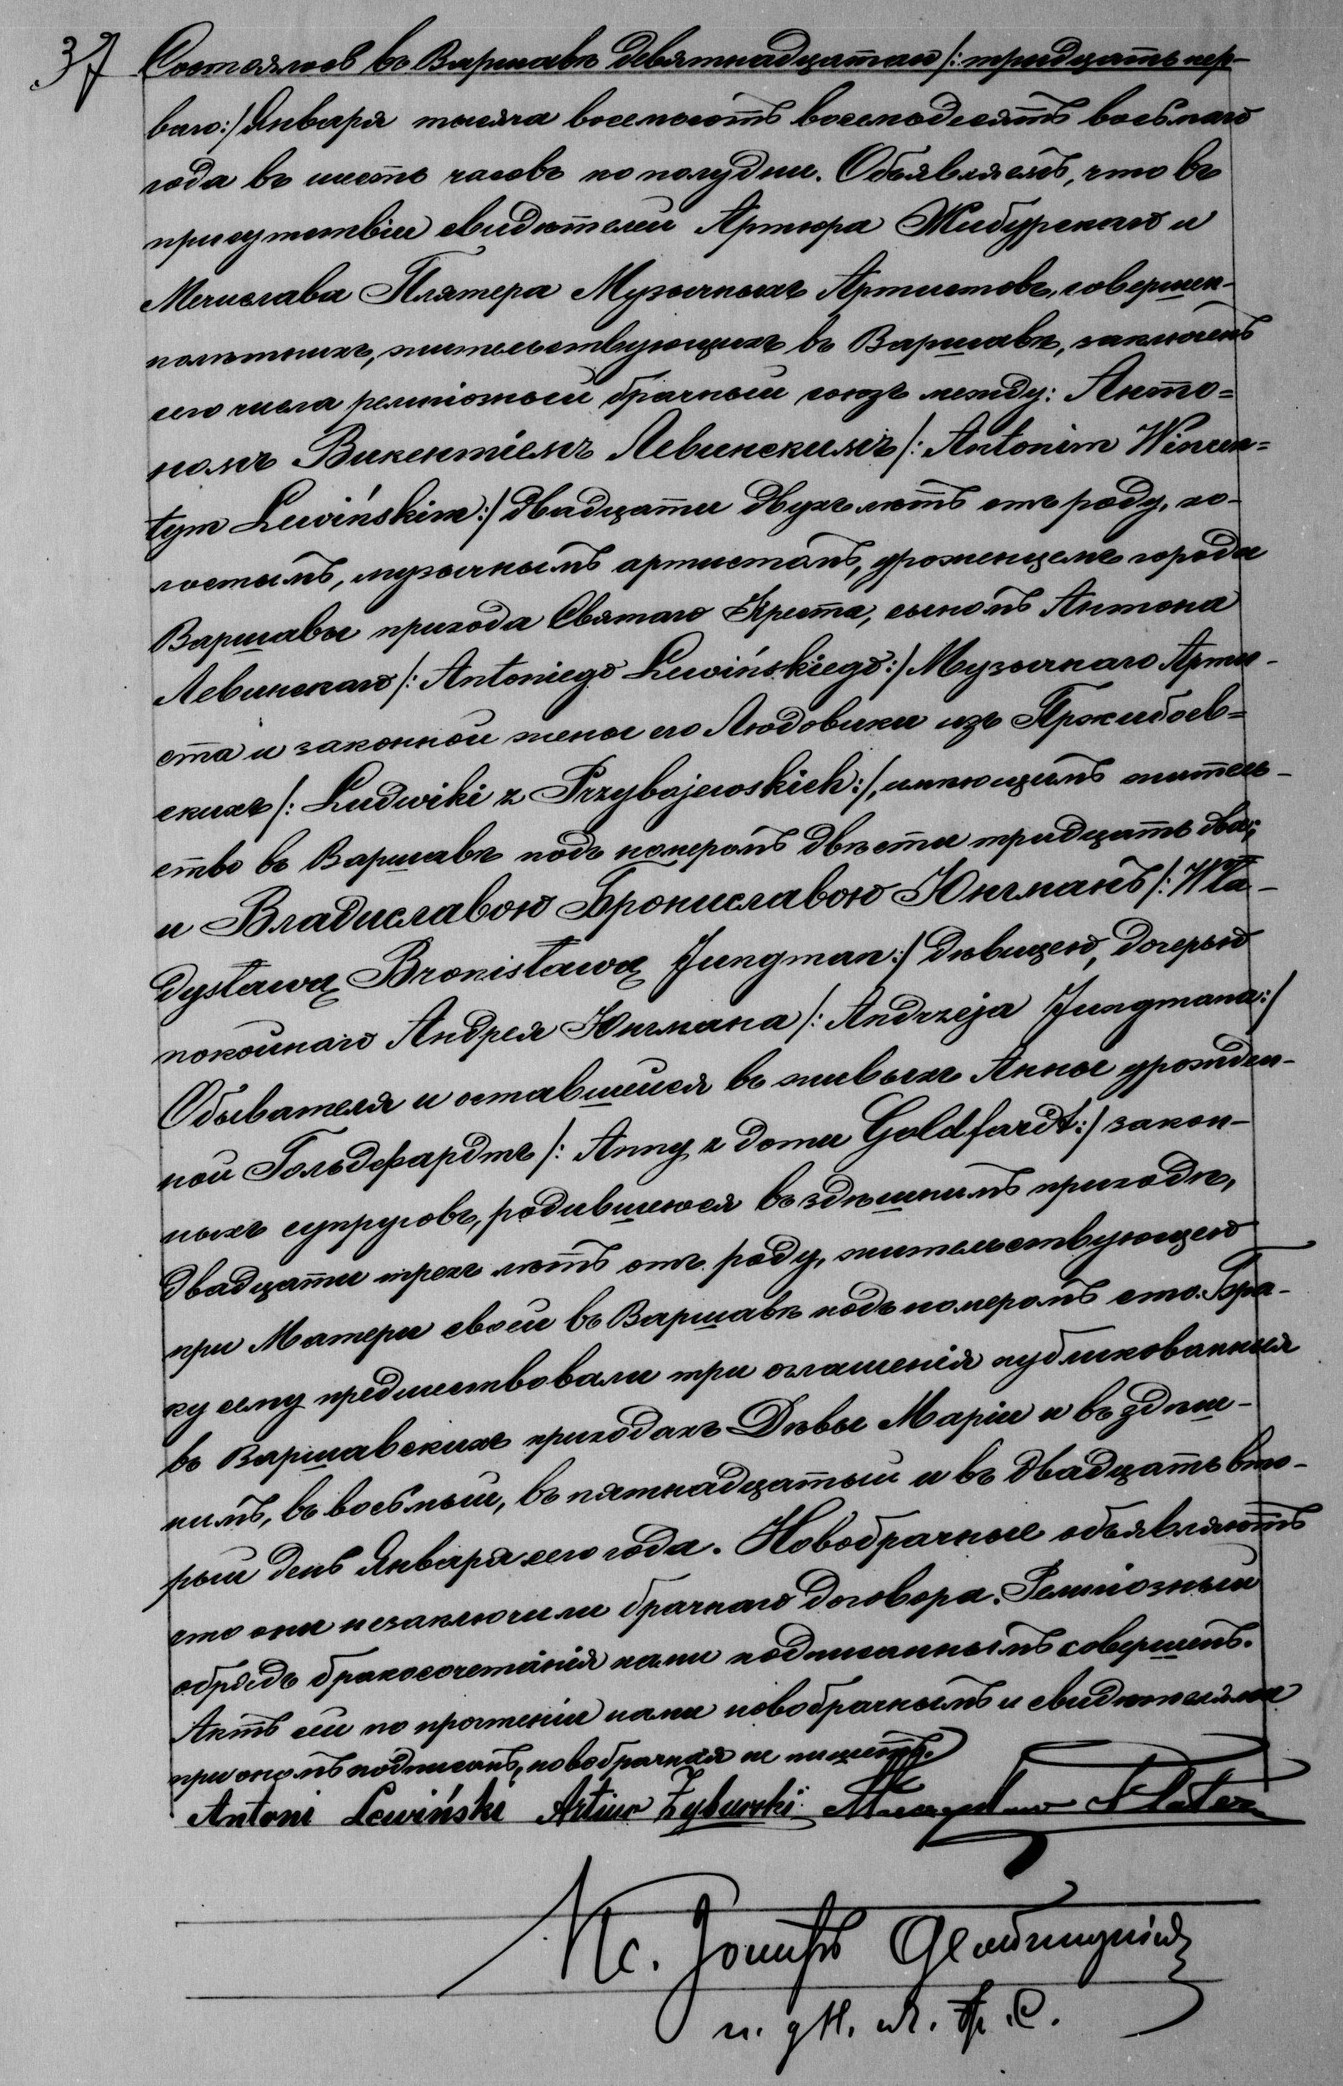 37 Состоялось въ Варшавѣ девятнадцатаго /:тридцать пер-
ваго:/ Января тысяча восемьсотъ восемьдесятъ восьмаго
года въ шесть часовъ по полудни. Объявляемъ, что въ
присутствіи свидѣтелей Артюра Жибурскаго и
Мечислава Плятера Музычныхъ Артистовъ, совершен-
нолѣтнихъ, жительствующихъ въ Варшавѣ, заключенъ
сего числа религіозный брачный союзъ между: Анто-
номъ Викентіемъ Левинскимъ /: Antonim Wincen=
tym Lewińskim:/ двадцати двухъ лѣтъ отъ роду, хо-
лостымъ, музычнымъ артистомъ, уроженцемъ города
Варшавы прихода Святаго Креста, сыномъ Антона
Левинскаго /: Antoniego Lewińskiego:/ Музычнаго Арти-
ста и законной жены его Людовики изъ Пржибоев=
скихъ /: Ludwiki z Przybojewskich:/, имѣющимъ житель-
ство въ Варшавѣ подъ номеромъ двѣсти тридцать два;
и Владиславою Брониславою Юнгманъ /: Wła-
dysławą Bronisławą Jungman:/ дѣвицею, дочерью
покойнаго Андрея Юнгмана /: Andrzeja Jungmana:/
Обывателя и оставшейся въ живыхъ Анны урожден-
ной Гольдфардтъ /: Anny z domu Goldfardt:/ закон-
ныхъ супруговъ, родившеюся въ здѣшнимъ приходѣ,
двадцати трехъ лѣтъ отъ роду, жительствующею
при Матери своей въ Варшавѣ подъ номеромъ сто. Бра-
ку сему предшествовали три оглашенія публикованныя
въ Варшавскихъ приходахъ Дѣвы Маріи и въ здѣш-
нимъ, въ восьмый, въ пятнадцатый и въ двадцать вто-
рый день Января сего года. Новобрачные объявляютъ
что они незаключили брачнаго договора. Религіозный
обрядъ бракосочетанія нами подписаннымъ совершенъ.
Актъ сей по прочтеніи нами новобрачнымъ и свидѣтелями
при ономъ подписанъ, новобрачная не пишетъ.
Antoni Lewiński Artur Żyburski Plater
Кс. Іосифъ